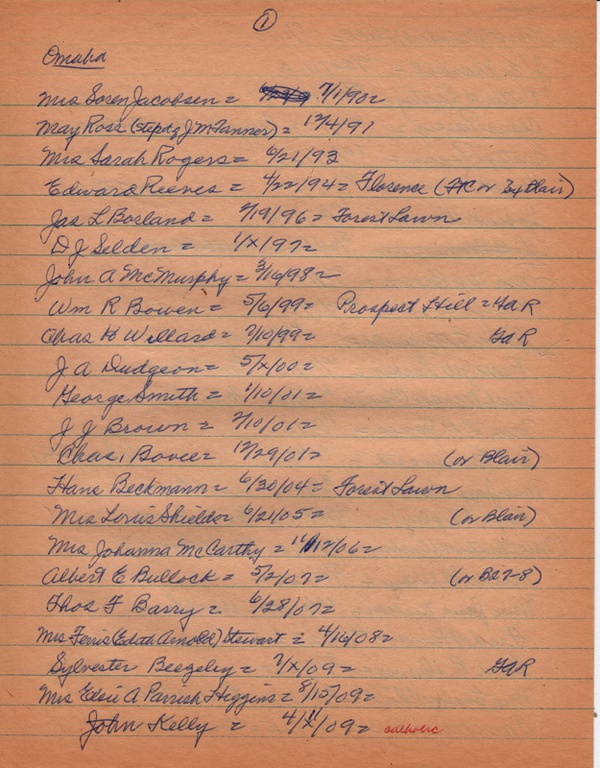 ①
Omaha
Mrs Soren Jacobsen = 7/1/90=
May Ross (stepd g J M Tanner) = 12/4/91
Mrs Sarah Rogers = 6/21/93
Edward Reeves = 4/22/94 = Florence ( or By Blair)
Jas L Borland = 7/19/96 = Forest Lawn
D J Selden = 1/x/97=
John A McMurphy = 3/16/98=
Wm R Bowen = 5/6/99= Prospect Hill = GaR
Chas K Willard = 7/10/99= GaR
J A Dudgeon = 5/x/00=
George Smith = 1/10/01=
J J Brown = 2/10/01=
Chas, Bovee = 12/29/01= (or Blair)
Hans Beckmann = 6/30/04= Forest Lawn
Mrs Louis Shields = 6/21/05= (or Blair)
Mrs Johanna McCarthy = 11/12/06=
Albert E Bullock = 5/2/07= (or B27-8)
Thos F Barry = 6/28/07=
Mrs Ferris (Edith Arnold) Stewart = 4/16/08=
Sylvester Beegeley = 7/x/09= GaR
Mrs Elsie A Parrish Higgins = 8/15/09=
John Kelly = 4/11/09= catholic